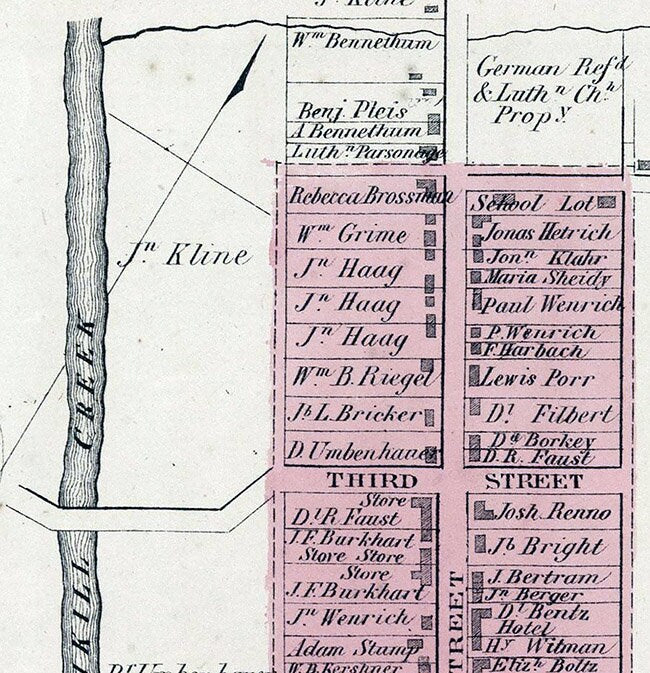 Jn Kline
Wm Bennethum
Benj. Pleis
A Bennethum
Luthn Parsonage
German Refd
& Luthn Chh
Propy.
Rebecca Brossman
Wm Grime
Jn Haag
Jn Haag
Jn Haag
Wm B. Riegel
Jb L. Bricker
D. Umbenhauer
School Lot
Jonas Hetrich
Jonn Klahr
Maria Sheidy
Paul Wenrich
P. Wenrich
F. Harbach
Lewis Porr
Dl Filbert
Dd Borkey
D. R. Faust
Jn Kline
CREEK
THIRD STREET
Store
Dl R Faust
J. F. Burkhart
Stove Store
Store
J. F. Burkhart
Jn Wenrich
Adam Stump
W. B. Kershner
Josh Renno
Jb Bright
J. Bertram
Jn Berger
Dl Bentz
Hotel
Hy Witman
Elizh Boltz
TREET
KILL